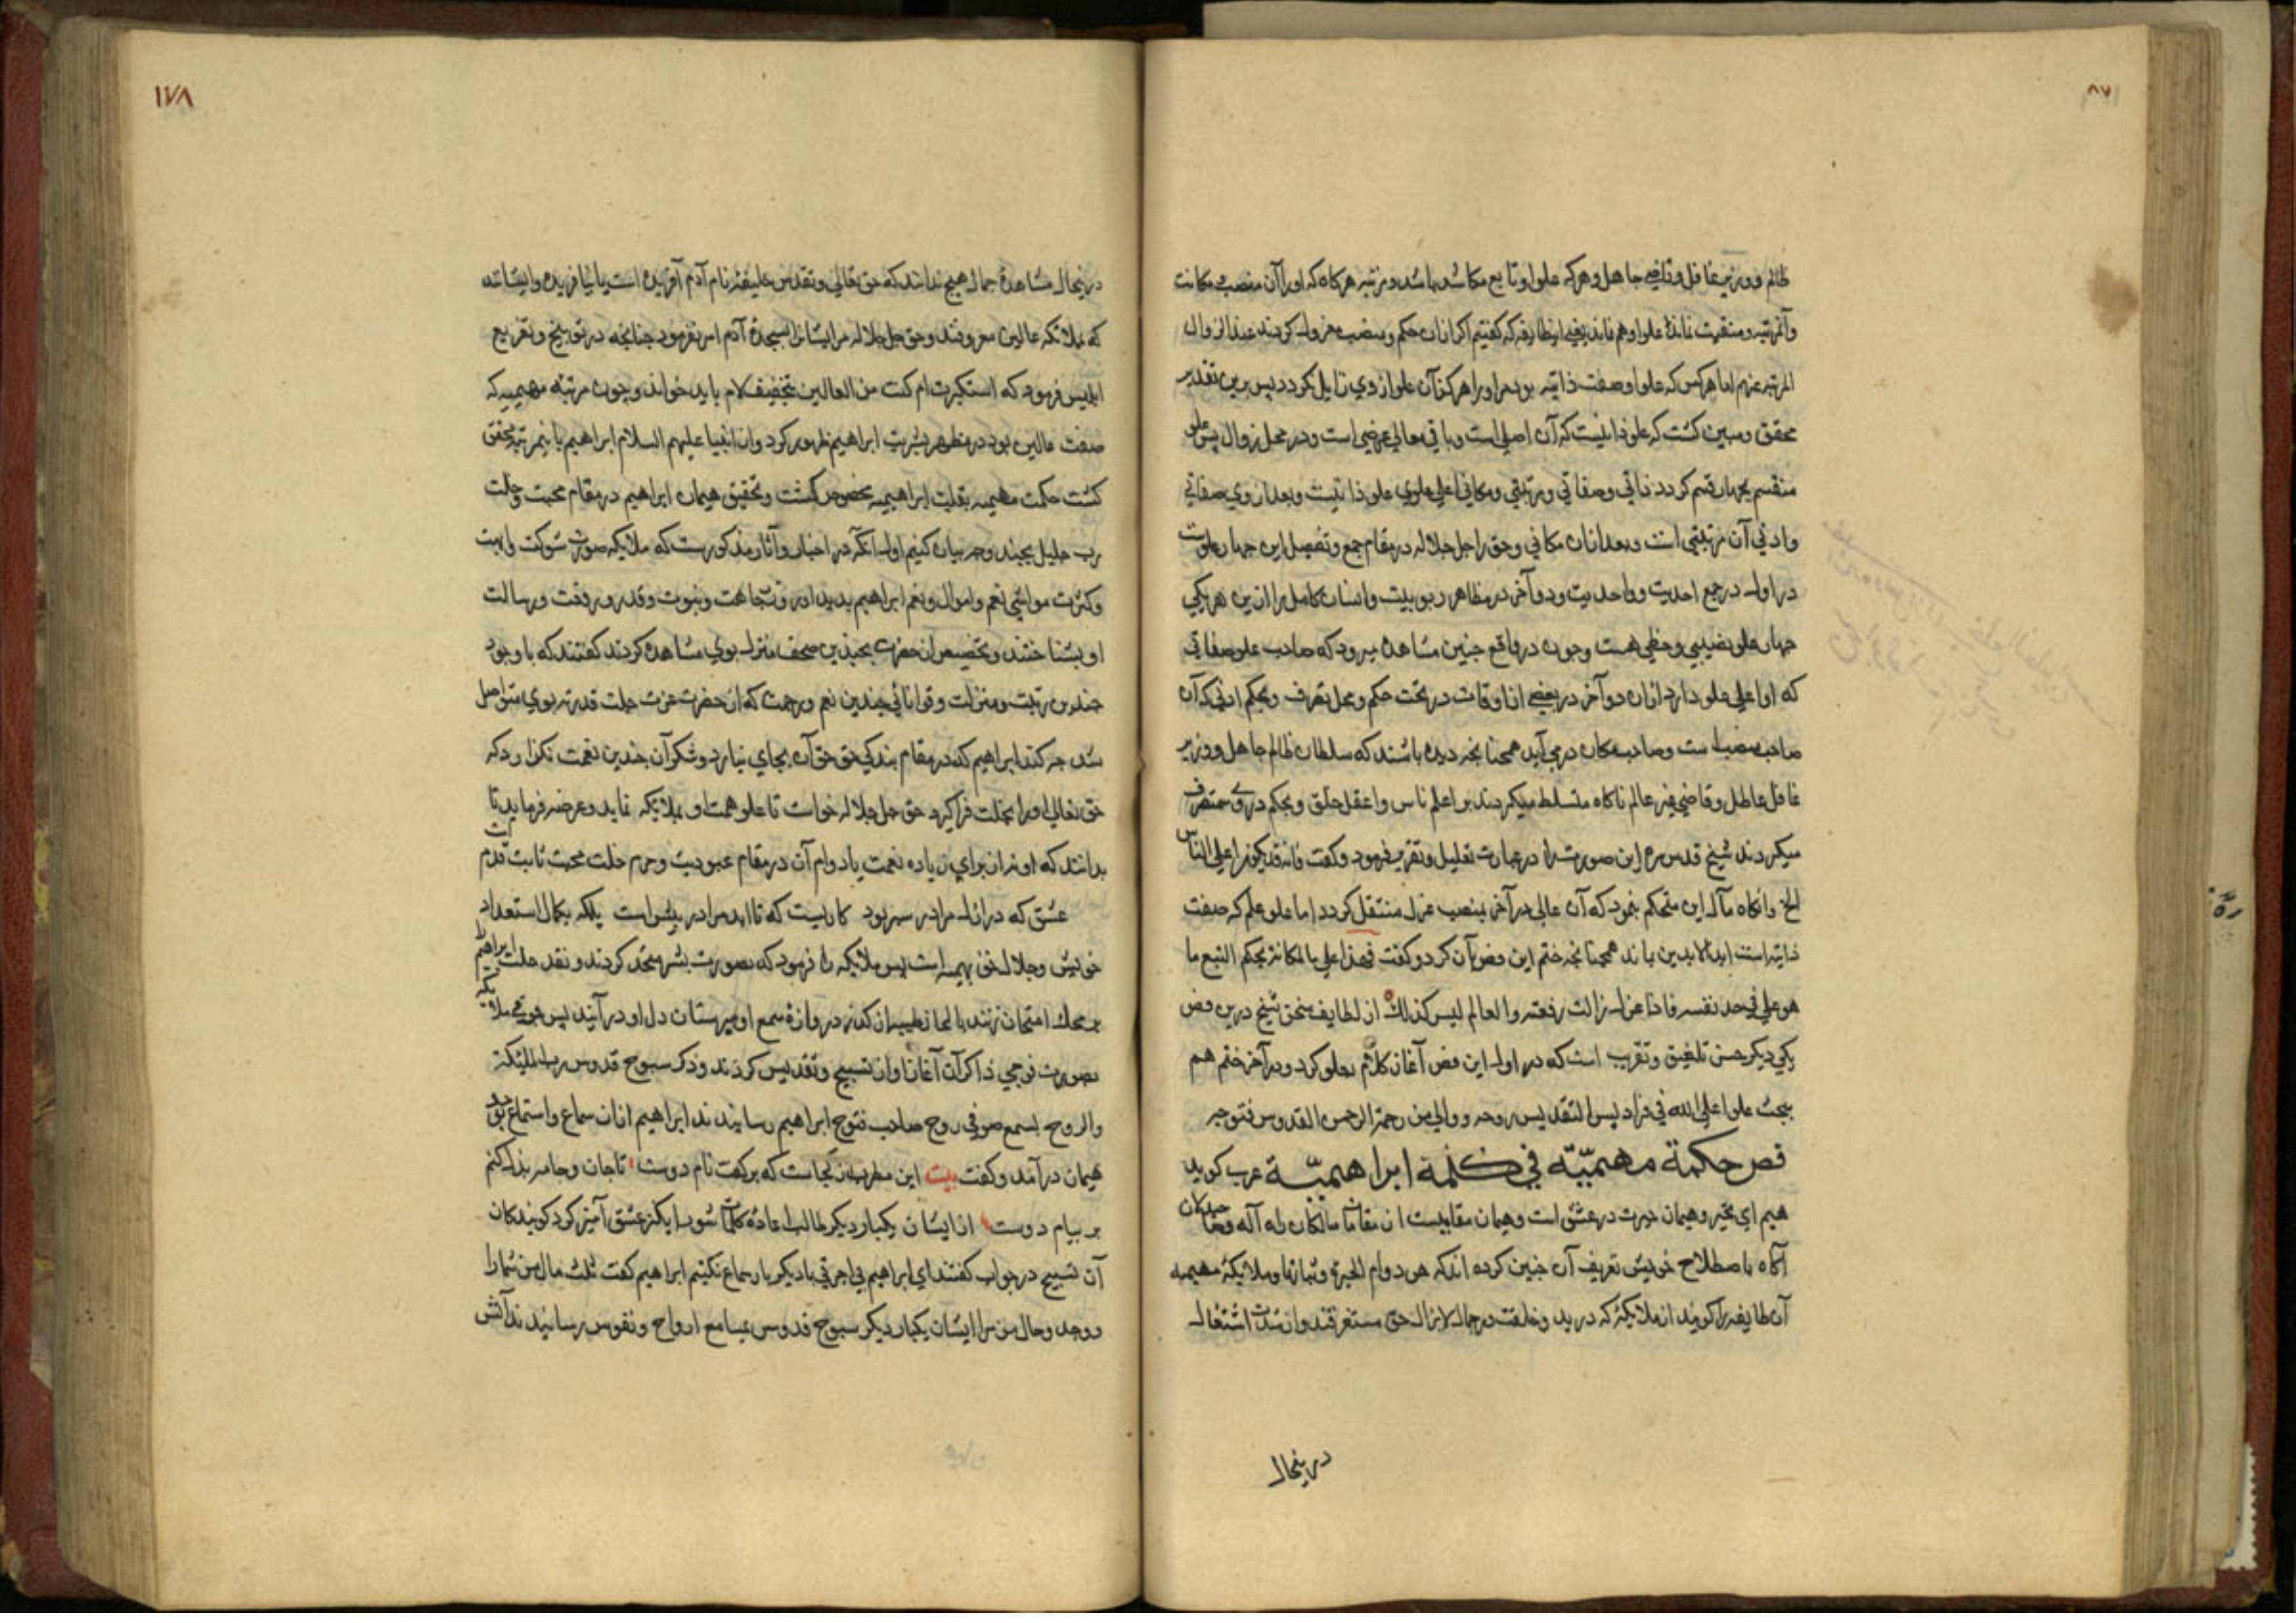 ظالم و وزیر غافل و قاضی جاهل و هر که علو او تابع مکان باشد و مرتبه هر کاه که او را آن منصب و مکانت
و آن مرتبه و منقبت نماند علو او هم نماند
المرتبه عنهم اما هر کس که علو او صفت ذاتیه بود مر او را هرکز آن علو از وی زایل نکردد پس برین تقدیر
محقق و مبین کشت که علو ذاتیست که آن اصلی است و باقی معالی عرضی است و در محل زوال پس علو
منقسم بچهار قسم کردد ذاتی و صفاتی و مرتبتی و مکانی اعلی علوی علو ذاتیست و بعد از وی صفاتی
و ادنی آن مرتبتی است و بعد از آن مکانی و حق را جل جلاله در مقام جمع و تفصیل این چهار علو است
در اول در جمع احدیت و واحدیت و دو آخر در مظاهر ربوبیت و انسان کامل را از این هر یکی
چهار علو نصیبی و حظی هست و چون در واقع چنین مشاهده میرود که صاحب علو صفاتی
که او اعلی علو دارد از آن دو آخر در بعضی از اوقات در تحت حکم و محل تصرف و بحکم ادنی که آن
صاحب منصب است و صاحب مکان در می آید همچنانچه دیده باشند که سلطان ظالم جاهل و وزیر
غافل عاطل و قاضی غیر عالم ناکاه متسلط میکردند بر اعلم ناس و اعقل خلق و بحکم در وی متصرف
میکردند شیخ قدس سره این صورت را در عبارت تعلیل و تقریر فرمود و کفت فانه قد یکون اعلی الناس
الخ و انکاه مآل این متحکم بنمود که آن عالی در آخر بمنصب عزل منتقل کردد اما علو علم که صفت
ذاتیه است ابد الابدین بماند همچنانچه ختم این فص بآن کرد و کفت فهذا علی بالمکانة بحکم التبع ما
هو علی فی حد نفسه فاذا عزل زالت رفعته و العالم لیس کذلک از لطایف سخن شیخ درین فص
یکی دیکر حسن تلفیق و تقرب است که در اول این فص آغاز کلام بعلو کرد و در آخر ختم هم
ببحث علو اعلی الله فی فرادیس التقدیس روحه و والی من رحمة الرحمن القدوس فتوحه
فص حکمة مهیمیّة فی کلمة ابراهیمیّة عرب کوید
هیم ای تحیر و هیمان حیرت در عشق است و هیمان مقامیست از مقامات سالکان راه اله و صاحبدلان
آکاه باصطلاح خویش تعریف آن چنین کرده اند که هو دوام الحیرة و ثباتها و ملائیکهٔ مهیمیه
آن طایفه را کویند از ملائیکه که در بدو خلقت در جمال لایزال حق مستغرقند و از شدت اشتغال
در ینحال
١٧٨
در ینحال مشاهدهٔ جمال هیچ ندانند که حق تعالی و تقدس خلیفهٔ نام آدم آفریده است یا نیافریده و ایشانند
که بملائکه عالین معروفند و حق جل جلاله مر ایشانرا بسجدهٔ آدم امر نفرمود چنانچه در توبیخ و تقریع
ابلیس فرمود که استکبرت ام کنت من العالین بتخفیف لام باید خواند و چون مرتبه مهیمیه که
صفت عالین بود در مظهر بشریت ابراهیم ظهور کرد و از انبیا علیهم السلام ابراهیم باینمرتبه محقق
کشت حکمت مهیمیه بقلیت ابراهیمیه مخصوص کشت و تحقیق هیمان ابراهیم در مقام محبت و خلت
رب جلیل بچند وجه بیان کنیم اول آنکه در اخبار و آثار مذکورست که ملایکه صورت شوکت و ابهت
و کثرت مواشی نعم و اموال و نعم ابراهیم بدیدند و وجاهت و نبوت و قدر و رفعت و رسالت
او بشناختند و تخصیص آن حضرت بچندین صحف منزل بوی مشاهده کردند کفتند که با وجود
چندین رتبت و منزلت و توانائی چندین نعم و رحمت که از حضرت عزت جلت قدرته بوی متواصل
شد چه کند ابراهیم که در مقام بندکی حق حق آن بجای نیارد و شکر آن چندین نعمت نکزارد که
حق تعالی او را بخلت فرا کیرد حق جل جلاله خواست تا علو همت او بملائیکه نماید و عرضه فرماید تا
بدانند که او نه از برای زیاده نعمت یا دوام آن در مقام عبودیت و حرم خلت محبت ثابت قدم است
عشق که در ازل مرا در سر بود کاریست که تا ابد مرا در پیش است بلکه بکمال استعداد
خویش و جلال حق مهیم است پس ملائیکه را فرمود که بصورت بشر متجسد کردند و نقد خلت ابراهیم
بر محک امتحان زنند بالحان طیب از کذر دروازهٔ سمع او بدرستان دل او درآیند پس جوقی ملائیکه
بصورت فوجی ذاکران آغاز آواز تسبیح و تقدیس کردند و ذکر سبوح قدوس رب الملئیکة
و الروح بسمع صوفی روح صاحب فتوح ابراهیم رسانیدند ابراهیم از آن سماع و استماع بوجد و
هیمان درآمد و کفت بیت این مطرب از کجاست که برکفت نام دوست تا جان و جامه بذل کنم
بر پیام دوست از ایشان یکبار دیکر طالب اعادهٔ کلمات شورانکیز عشق آمیز کرد کویندکان
آن تسبیح در جواب کفتند ای ابراهیم بی اجرتی بار دیکر با سماع نکنیم ابراهیم کفت ثلث مال من شما را
و وجد و حال من مر ایشان یکبار دیکر سبوح قدوس بمسامع ارواح و نفوس رسانیدند آتش